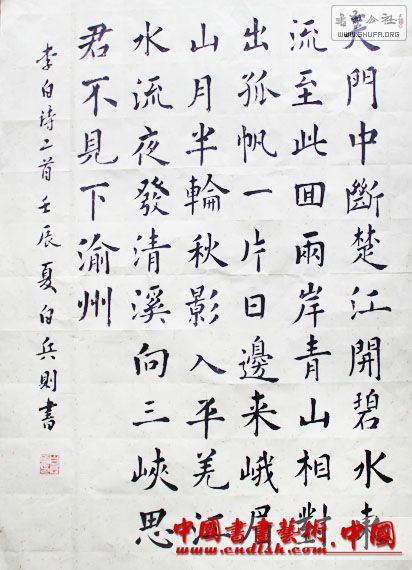 天門中斷楚江開碧水東
流至此囬兩岸青山相對
出孤帆一片日邊来峨眉
山月半輪秋影入平羌江
水流夜發清溪向三峽思
君不見下渝州
李白詩二首壬辰夏白兵則書
公社
WWW.SHUFA.ORG
中國書畫藝術.中國
www.cndlsh.com